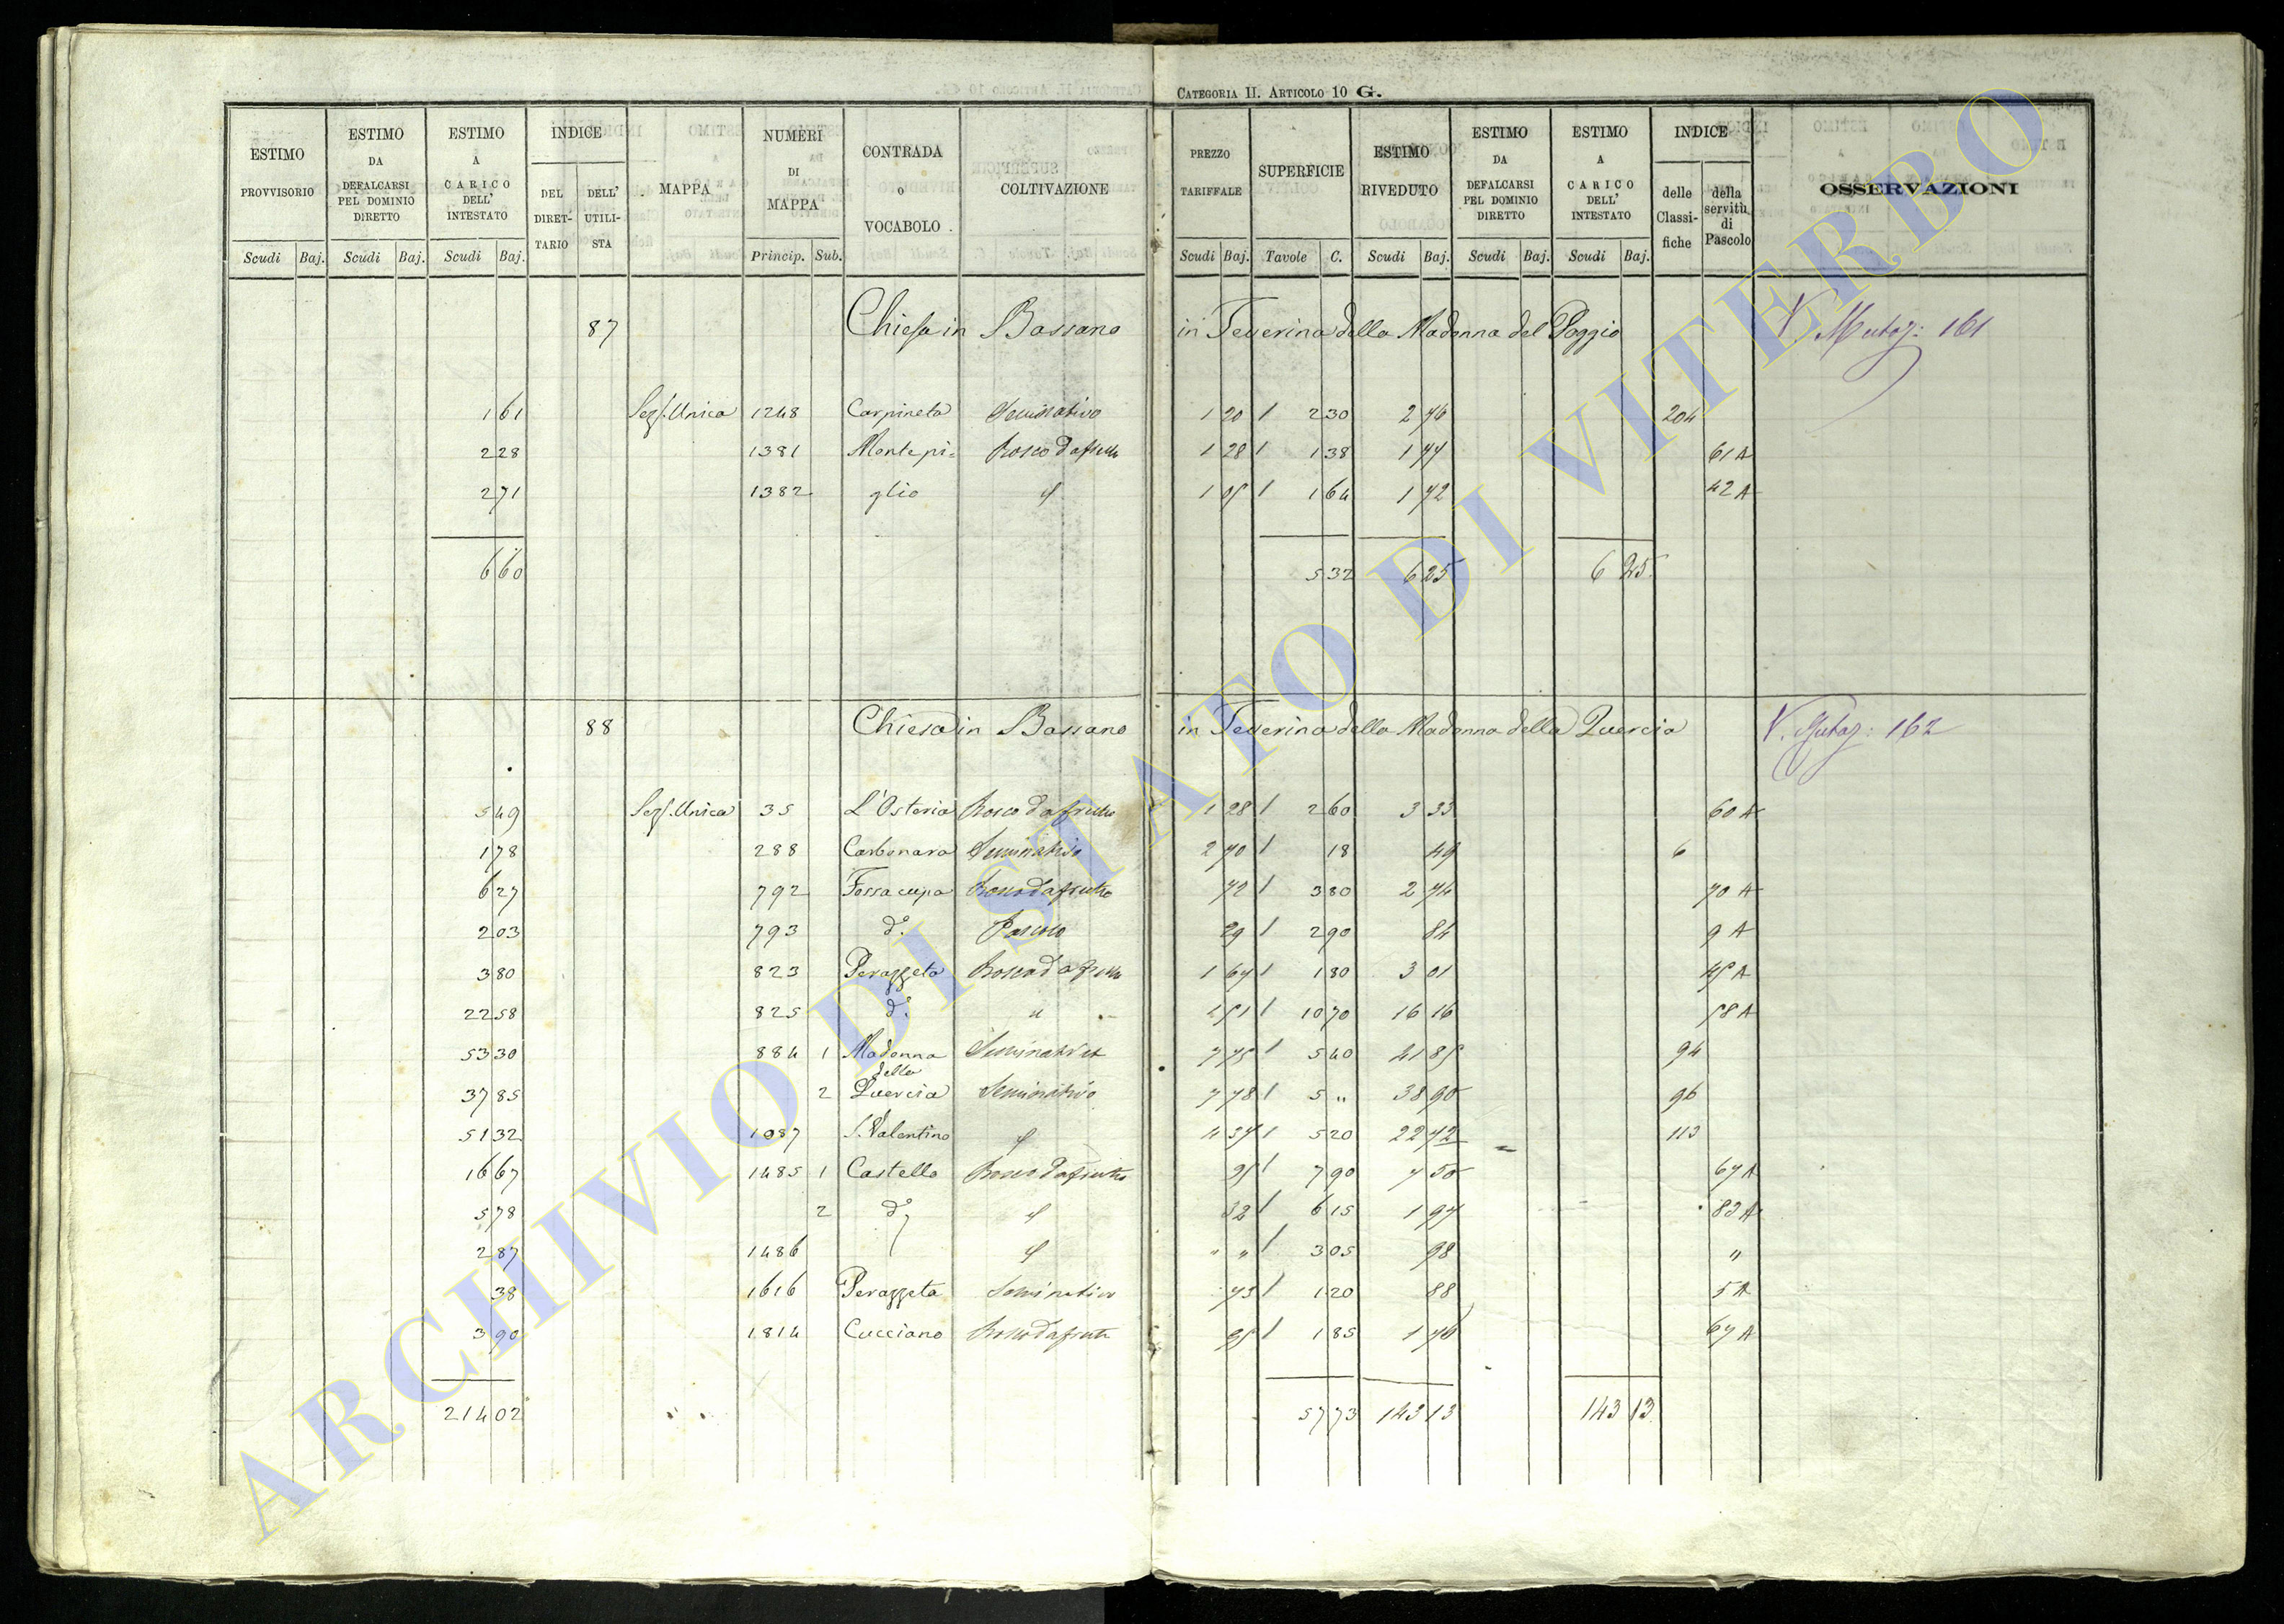 CATEGORIA II. ARTICOLO 10 G.
ESTIMO PROVVISORIO | ESTIMO DA DEFALCARSI PEL DOMINIO DIRETTO | ESTIMO A CARICO DELL' INTESTATO | INDICE | MAPPA | NUMERI DI MAPPA | CONTRADA O VOCABOLO | COLTIVAZIONE | PREZZO TARIFFALE | SUPERFICIE | ESTIMO RIVEDUTO | ESTIMO DA DEFALCARSI PEL DOMINIO DIRETTO | ESTIMO A CARICO DELL' INTESTATO | INDICE | OSSERVAZIONI
DEL DIRETTARIO | DELL' UTILISTA | delle Classifiche | della servitù di Pascolo
Scudi Baj. | Scudi Baj. | Scudi Baj. | Princip. Sub. | Scudi Baj. | Tavole C. | Scudi Baj. | Scudi Baj. | Scudi Baj.
87 Chiesa in Bassano in Teverina della Madonna del Poggio V. Mutaz: 161
1 61 Sez. Unica 1248 Carpineta Seminativo 1 20 2 30 2 76 204
2 28 1381 Montepi= Bosco da frutto 1 28 1 38 1 77 61 A
2 71 1382 glio 1 05 1 64 1 72 42 A
6 60 5 32 6 25 6 25
88 Chiesa in Bassano in Teverina della Madonna della Quercia V. Mutaz: 162
5 49 Sez. Unica 35 L'Osteria Bosco da frutto 1 28 2 60 3 33 60 A
1 78 288 Carbonara Seminativo 2 70 18 49 6
6 27 792 Fossa cupa Bosco da frutto 72 3 80 2 74 70 A
2 03 793 d°. Pascolo 29 2 90 84 9 A
3 80 823 Perazzeta Bosco da frutto 1 67 1 80 3 01 45 A
22 58 825 d°. " 1 51 10 70 16 16 58 A
53 30 884 1 Madonna Seminativo 7 75 5 40 41 85 94
della
37 85 2 Quercia Seminativo 7 78 5 " 38 90 96
51 32 1087 S. Valentino 4 37 5 20 22 72 113
16 67 1485 1 Castello Bosco da frutto 95 7 90 7 50 67 A
5 78 2 d° 32 6 15 1 97 83 A
2 87 1486 " " 3 05 98 "
38 1616 Perazzeta Seminativo 73 1 20 88 5 A
3 90 1814 Cucciano Bosco da frutto 95 1 85 1 76 67 A
214 02 57 73 143 13 143 13
ARCHIVIO DI STATO DI VITERBO